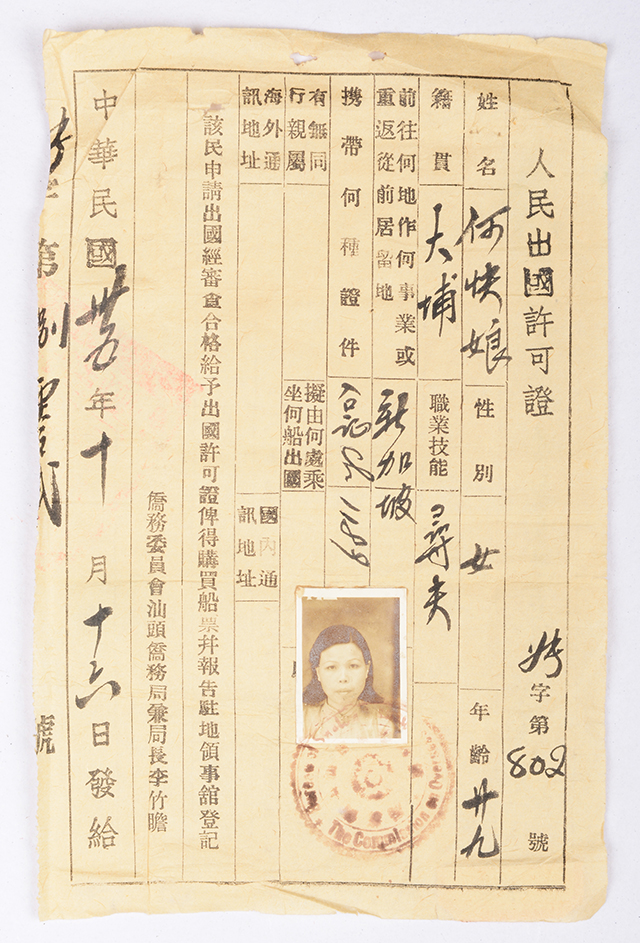 人民出國許可證
字第802號
姓名 何快娘 性別 女 年齡 廿九
籍貫 大埔 職業技能 尋夫
前往何地作何事業或重返從前居留地 新加坡
攜帶何種證件
有無同行親屬 擬由何處乘坐何船出國
海外通訊地址 國內通訊地址
該民申請出國經審查合格給予出國許可證俾得購買船票幷報告駐地領事舘登記
僑務委員會汕頭僑務局兼局長李竹瞻
中華民國卅五年十月十六日發給
字第捌零貳號
The Commission on Overseas